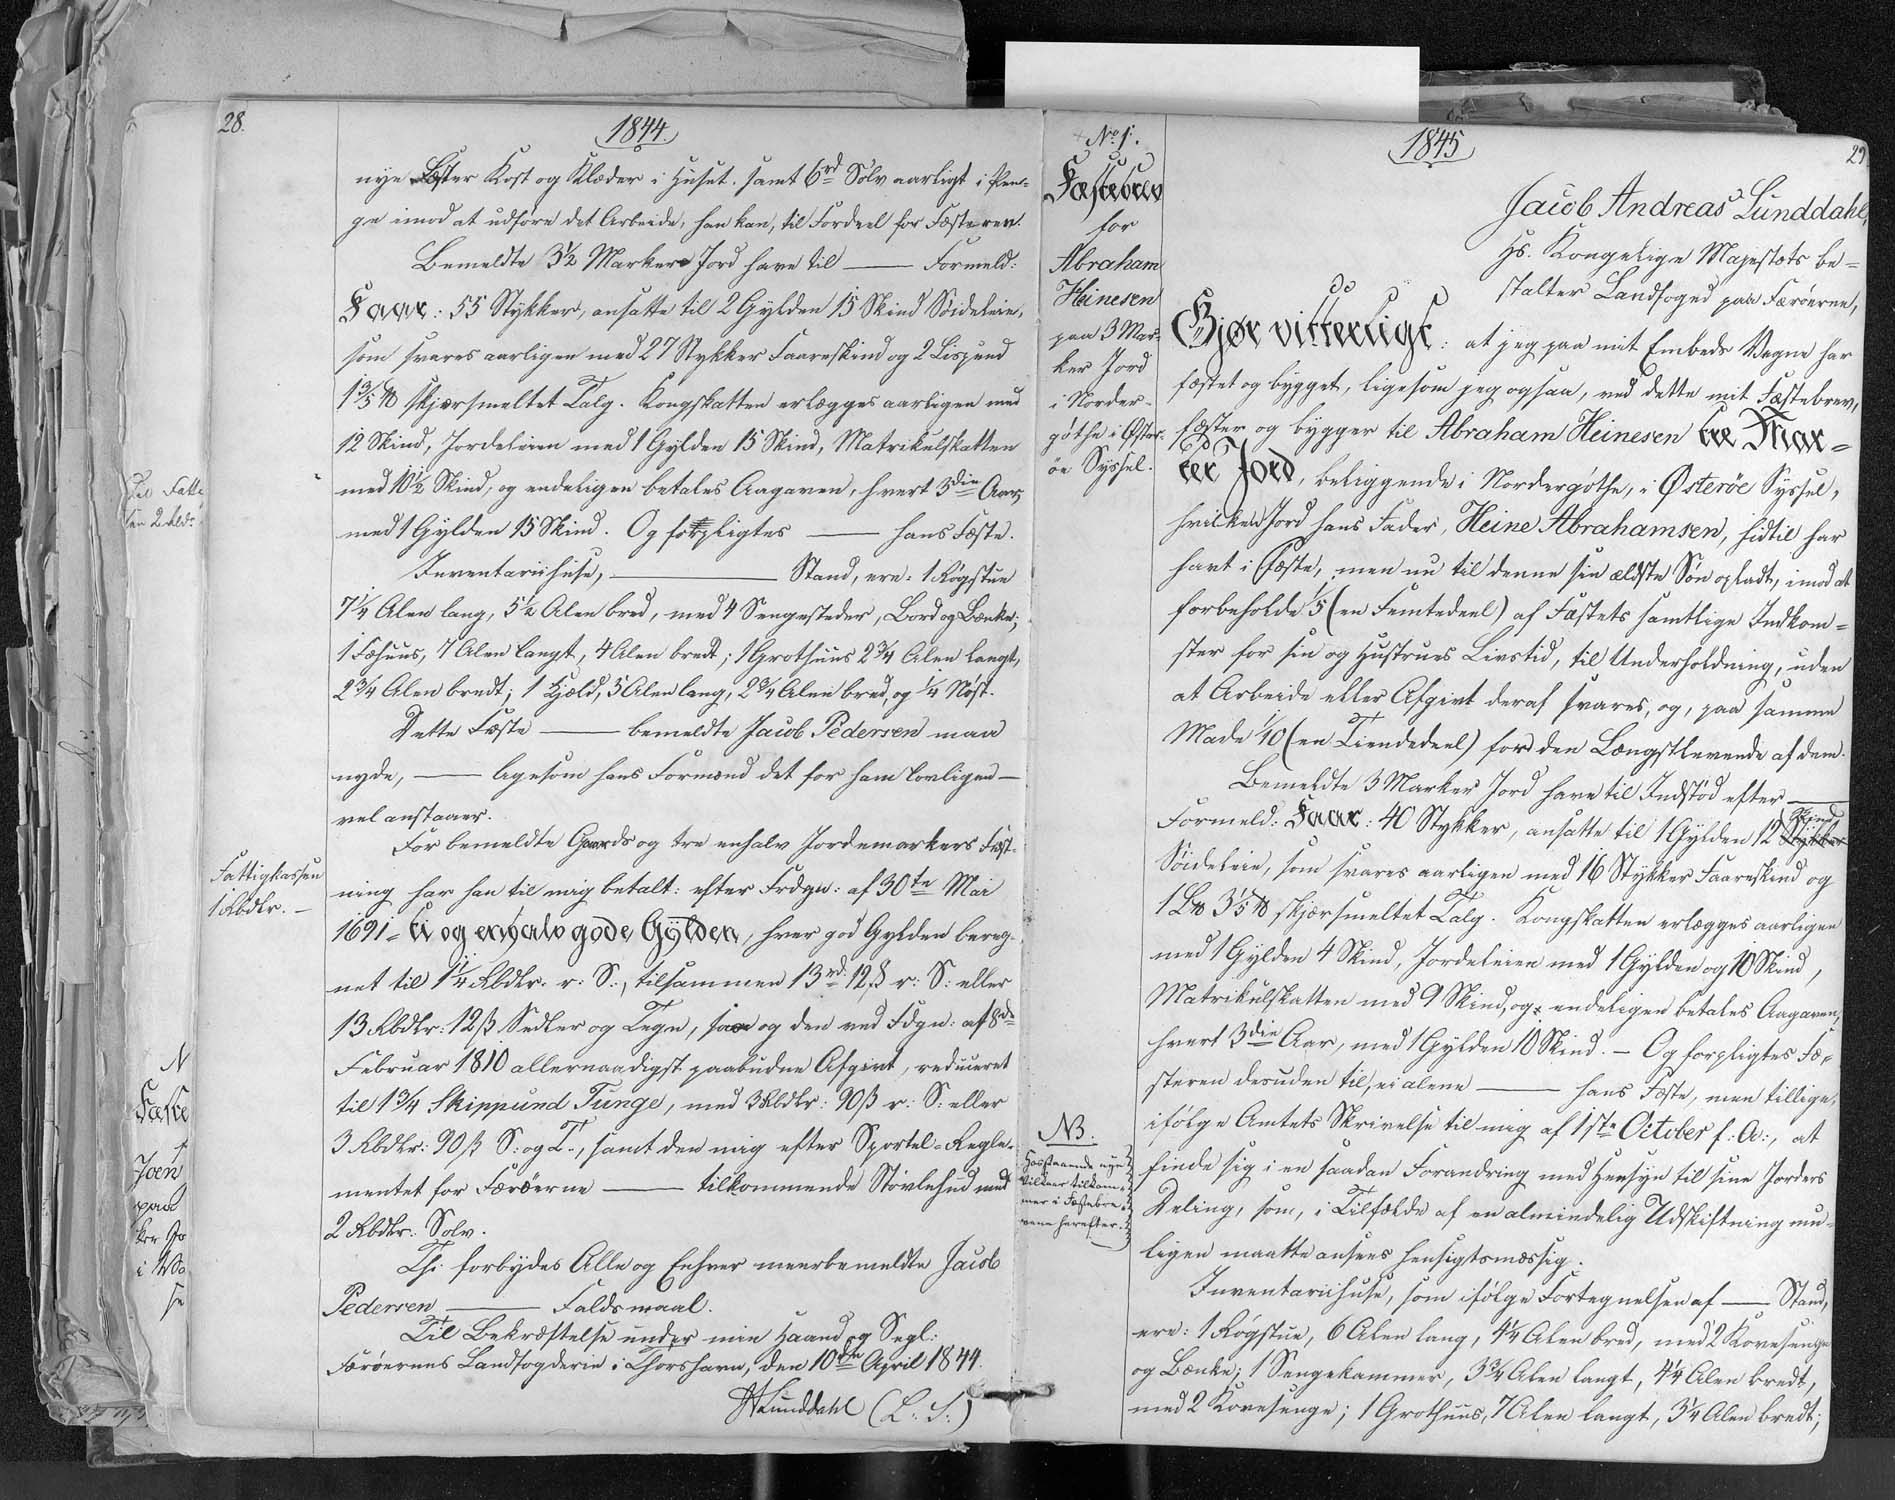 28.
1844.
nye Fæster Kost og Klæder i Huset. samt 6rd Sølv aarligt i Pen-
ge imod at udføre det Arbeide, han kan, til Fordeel for Fæsteren.
Bemeldte 3½ Marker Jord have til —— Formeld:
Faar: 55 Stykker, ansatte til 2 Gylden 15 Skind Søideleie,
som svares aarligen med 27 Stykker Faareskind og 2 Lispund
1 3/5 ℔ skjærsmeltet Talg. Kongskatten erlægges aarligen med
12 Skind, Jordeleien med 1 Gylden 15 Skind, Matrikulskatten
med 10½ Skind, og endeligen betales Aagaven, hvert 3die Aar,
med 1 Gylden 15 Skind. Og forpligtes —— hans Fæste.
Inventariihuse, —— Stand, ere: 1 Røgstue
7¼ Alen lang, 5½ Alen bred, med 4 Sengesteder, Bord og Bænke;
1 Fæhuus, 7 Alen langt, 4 Alen bredt; 1 Grothuus 2¾ Alen langt,
2¾ Alen bredt; 1 Hjeld, 5 Alen lang, 2¾ Alen bred, og ¼ Nøst.
Dette Fæste —— bemeldte Jacob Pedersen maa
nyde, —— ligesom hans Formænd det for ham lovligen —
vel anstaaer.
For bemeldte Gaards og tre enhalv Jordemarkers Fæst-
Fattigkassen
1 Rbdlr. —
ning har han til mig betalt: efter Frdgn: af 30te Mai
1691 = ti og enhalv gode Gylden, hver god Gylden bereg-
net til 1¼ Rbdlr. r: S:, tilsammen 13rd 12ß r: S: eller
13 Rbdlr: 12ß Sedler og Tegn, saa og den ved Fdgn: af 8de
Februar 1810 allernaadigst paabudne Afgivt, reduceret
til 1¾ Skippund Tunge, med 3 Rbdlr: 90ß r: S: eller
3 Rbdlr: 90ß S: og T., samt den mig efter Sportel-Regle-
mentet for Færøerne —— tilkommende Støvlehud med
2 Rbdlr. Sølv.
Thi forbydes Alle og Enhver meerbemeldte Jacob
Pedersen —— Faldsmaal.
Til Bekræftelse under min Haand og Segl:
Færøernes Landfogderie i Thorshavn, den 10de April 1844.
Lunddahl (L. S.)
No 1.
Fæstebrev
for
Abraham
Heinesen
paa 3 Mar-
ker Jord
i Norder-
gøthe i Øster-
øe Syssel.
1845
29
Jacob Andreas Lunddahl,
Hs. Kongelige Majestæts be-
stalter Landfoged paa Færøerne,
Gjør vitterligt: at jeg paa mit Embeds Vegne har
fæstet og bygget, ligesom jeg ogsaa, ved dette mit Fæstebrev,
fæster og bygger til Abraham Heinesen tre Mar-
ker Jord, beliggende i Nordergøthe, i Østerøe Syssel,
hvilken Jord hans Fader, Heine Abrahamsen, hidtil har
havt i Fæste, men nu til denne sin ældste Søn opladt, imod at
forbeholde 1/5 (en Femtedeel) af Fæstets samtlige Indkom-
ster for sin og Hustrues Livstid, til Underholdning, uden
at Arbeide eller Afgivt deraf svares, og, paa samme
Made 1/10 (en Tiendedeel) for den Længstlevende af dem.
Bemeldte 3 Marker Jord have til Indstød efter ——
Formeld: Faar: 40 Stykker, ansatte til 1 Gylden 12 Stykker Skind
Søideleie, som svares aarligen med 16 Stykker Faareskind og
1 L℔ 3 1/5 ℔ skjærsmeltet Talg. Kongskatten erlægges aarligen
med 1 Gylden 4 Skind, Jordeleien med 1 Gylden og 10 Skind,
Matrikulskatten med 9 Skind, og endeligen betales Aagaven,
hvert 3die Aar, med 1 Gylden 10 Skind. — Og forpligtes Fæ-
steren desuden til, ei alene —— hans Fæste, men tillige,
ifølge Amtets Skrivelse til mig af 1ste October f: A:, at
NB.
Hosstaaende nye
Vilkaar tilkom-
mer i Fæstebre-
vene herefter.
finde sig i en saadan Forandring med Hensyn til sine Jorders
Deling, som, i Tilfælde af en almindelig Udskiftning mu-
ligen maatte ansees hensigtsmæssig.
Inventariihuse, som ifølge Fortegnelsen af —— Stand,
ere: 1 Røgstue, 6 Alen lang, 4¼ Alen bred, med 2 Kovesenge
og Bænke; 1 Sengekammer, 3¾ Alen langt, 4¼ Alen bredt,
med 2 Kovesenge; 1 Grothuus, 7 Alen langt, 3¼ Alen bredt;